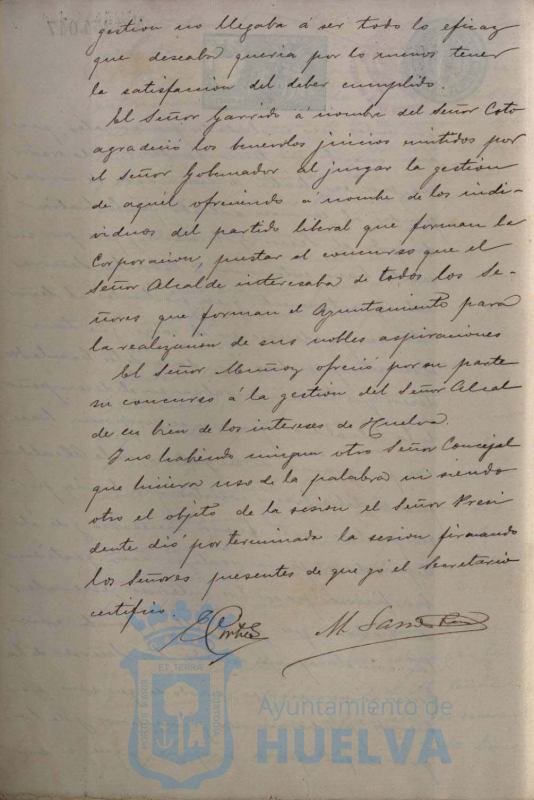 gestion no llegaba á ser todo lo eficaz
que deseaba queria por lo menos tener
la satisfaccion del deber cumplido.
El Señor Garrido á nombre del Señor Coto
agradeció los benevolos juicios emitidos por
el Señor Gobernador al juzgar la gestión
de aquél ofreciendo á nombre de los indi-
viduos del partido liberal que forman la
Corporacion, prestar el concurso que el
Señor Alcalde interesaba de todos los Se-
ñores que forman el Ayuntamiento para
la realizacion de sus nobles aspiraciones
El Señor Muñoz ofreció por su parte
su concurso á la gestion del Señor Alcal
de en bien de los intereses de Huelva.
Y no habiendo ningun otro Señor Concejal
que hiciera uso de la palabra ni siendo
otro el objeto de la sesion el Señor Presi
dente dió por terminada la sesion firmando
los Señores presentes de que yo el Secretario
certifico
M.
ET TERRÆ
PORTUS MARIS
CUSTODIA
Ayuntamiento de
HUELVA